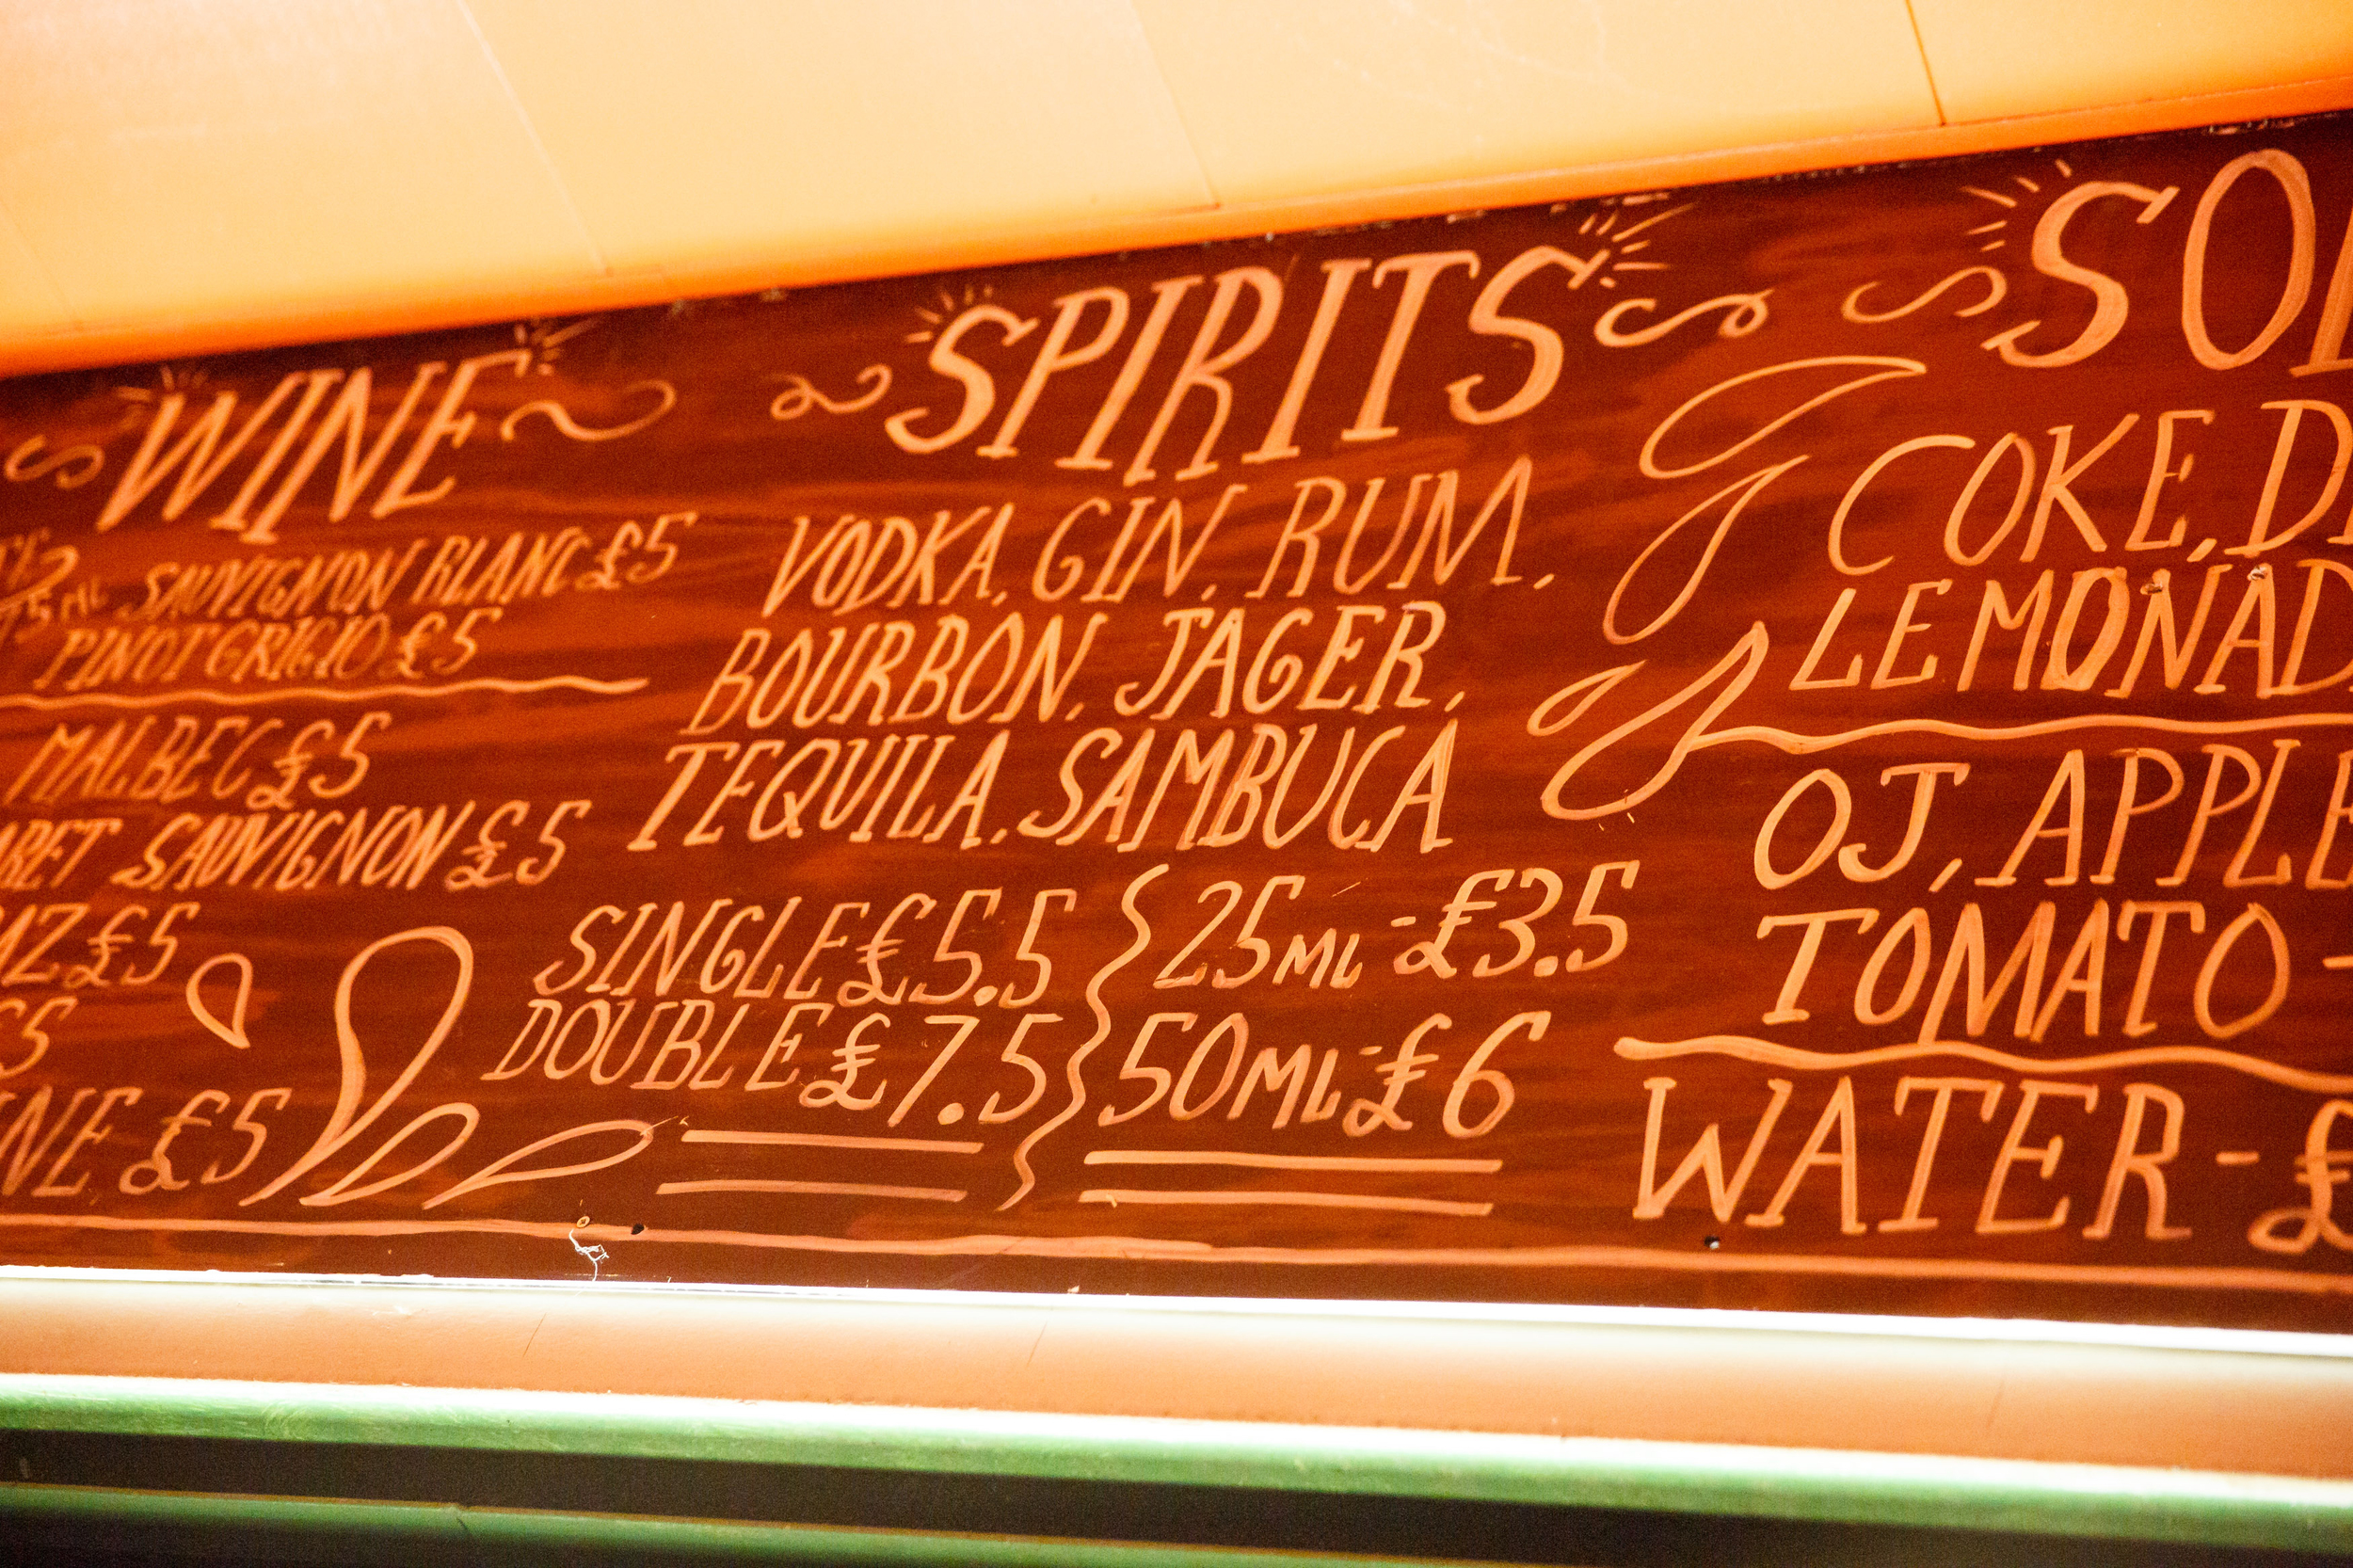 WINE
75ML SAUVIGNON BLANC £5
PINOT GRIGIO £5
MALBEC £5
ARET SAUVIGNON £5
AZ £5
£5
INE £5
SPIRITS
VODKA, GIN, RUM,
BOURBON, JAGER,
TEQUILA, SAMBUCA
SINGLE £5.5
DOUBLE £7.5
25ML - £3.5
50ML - £6
SO
COKE, D
LEMONAD
OJ, APPLE
TOMATO -
WATER - £